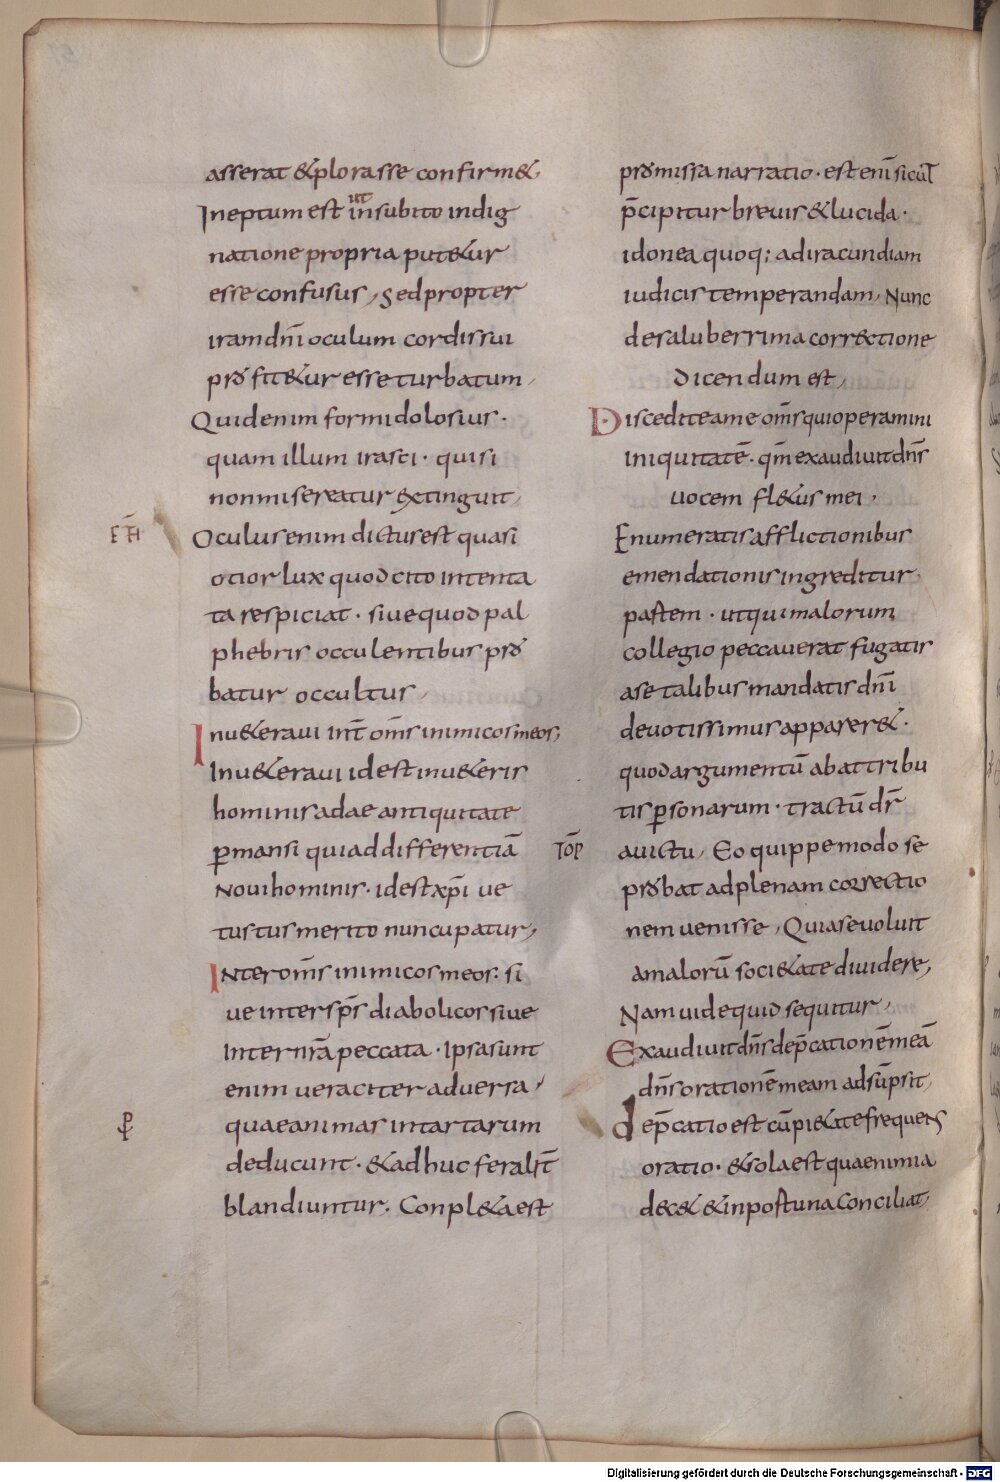 asserat &plorasse confirm&
Ineptum est ut insubito indig
natione propria put&ur
esse confusus, Sed propter
iram dn̄i oculum cordis sui
profit&ur esse turbatum,
Quid enim formidolosius·
quam illum irasci· qui si
non misereatur extinguit,
ETH
Oculus enim dictus est quasi
ocior lux quod cito intenta
ta respiciat· siue quod pal
phebris occulentibus pro
batur occultus,
Inu&eraui int̄ om̄s inimicos meos;
Inu&eraui id est inu&eris
hominis adae antiquitate
ꝑmansi qui ad differentiā
Noui hominis· id est xp̄i ue
tustus merito nuncupatur,
Inter om̄s inimicos meos· si
ue inter sp̄s diabolicos siue
Inter nr̄a peccata· Ipsa sunt
enim ueraciter aduersa,
quae animas in tartarum
deducunt· &adhuc feralit̄
blandiuntur, Conpl&a est
promissa narratio· est enī sicut
p̄cipitur breuis & lucida·
idonea quoq; ad iracundiam
iudicis temperandam, Nunc
de saluberrima corr&ctione
dicendum est,
Discedite a me om̄s qui operamini
iniquitatē· qm̄ exaudiuit dn̄s
uocem fl&us mei,
Enumeratis afflictionibus
emendationis ingreditur
partem· ut qui malorum
collegio peccauerat fugatis
a se talibus mandatis dn̄i
deuotissimus apparer&·
quod argumentū ab attribu
tis ꝑsonarum· tractū dr̄
TOP̄
a uictu, Eo quippe modo se
probat ad plenam correctio
nem uenisse, Quia se uoluit
a malorū soci&ate diuidere,
Nam uide quid sequitur,
Exaudiuit dn̄s dep̄cationē meā
dn̄s orationē meam adsūpsit,
dep̄catio est cū pi&ate frequens
oratio· &sola est quae nimia
dec& &inportuna conciliat,
Digitalisierung gefördert durch die Deutsche Forschungsgemeinschaft - DFG